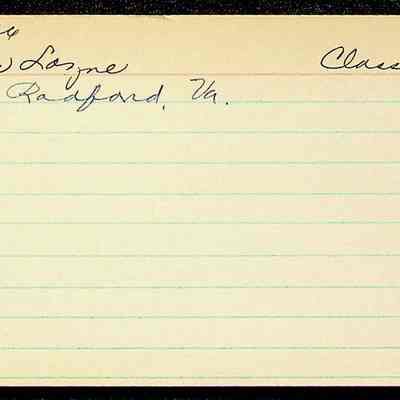 Layne Class
Radford, Va.